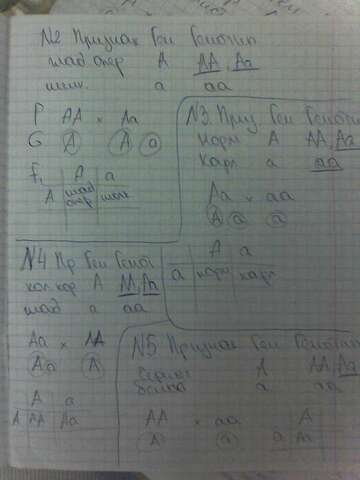 N2 Признак Ген Генотип
глад опер A AA, Aa
шелк. a aa
P AA × Aa
G A A a
F1 A a
A глад опер шелк
N3. Приз Ген Генотип
норм A AA Aa
Карл a aa
Aa × aa
A a a
A a
a норм карл
N4 Пр Ген Геном
A AA, Aa
глад a aa
Aa × AA
A a A
A a
A AA Aa
N5 Признак Ген Генотип
A AA Aa
a aa
AA × aa
A a
A
a Aa